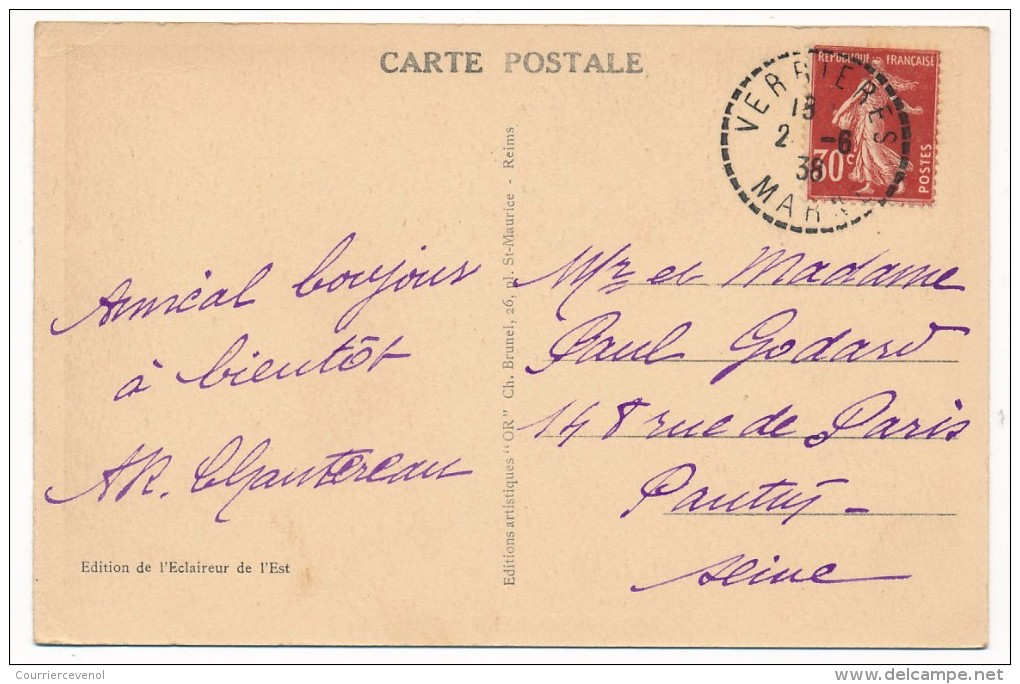 CARTE POSTALE
REPUBLIQUE FRANÇAISE
30c
POSTES
VERRIERES
18
2 -6
38
MARNE
Amical boujour
à bientôt
AR. Chantereau
Edition de l'Eclaireur de l'Est
Editions artistiques "OR" Ch. Brunel, 26, pl. St-Maurice - Reims
Mr et Madame
Paul Godard
148 rue de Paris
Pantin -
Seine
Courriercevenol
delcampe.net